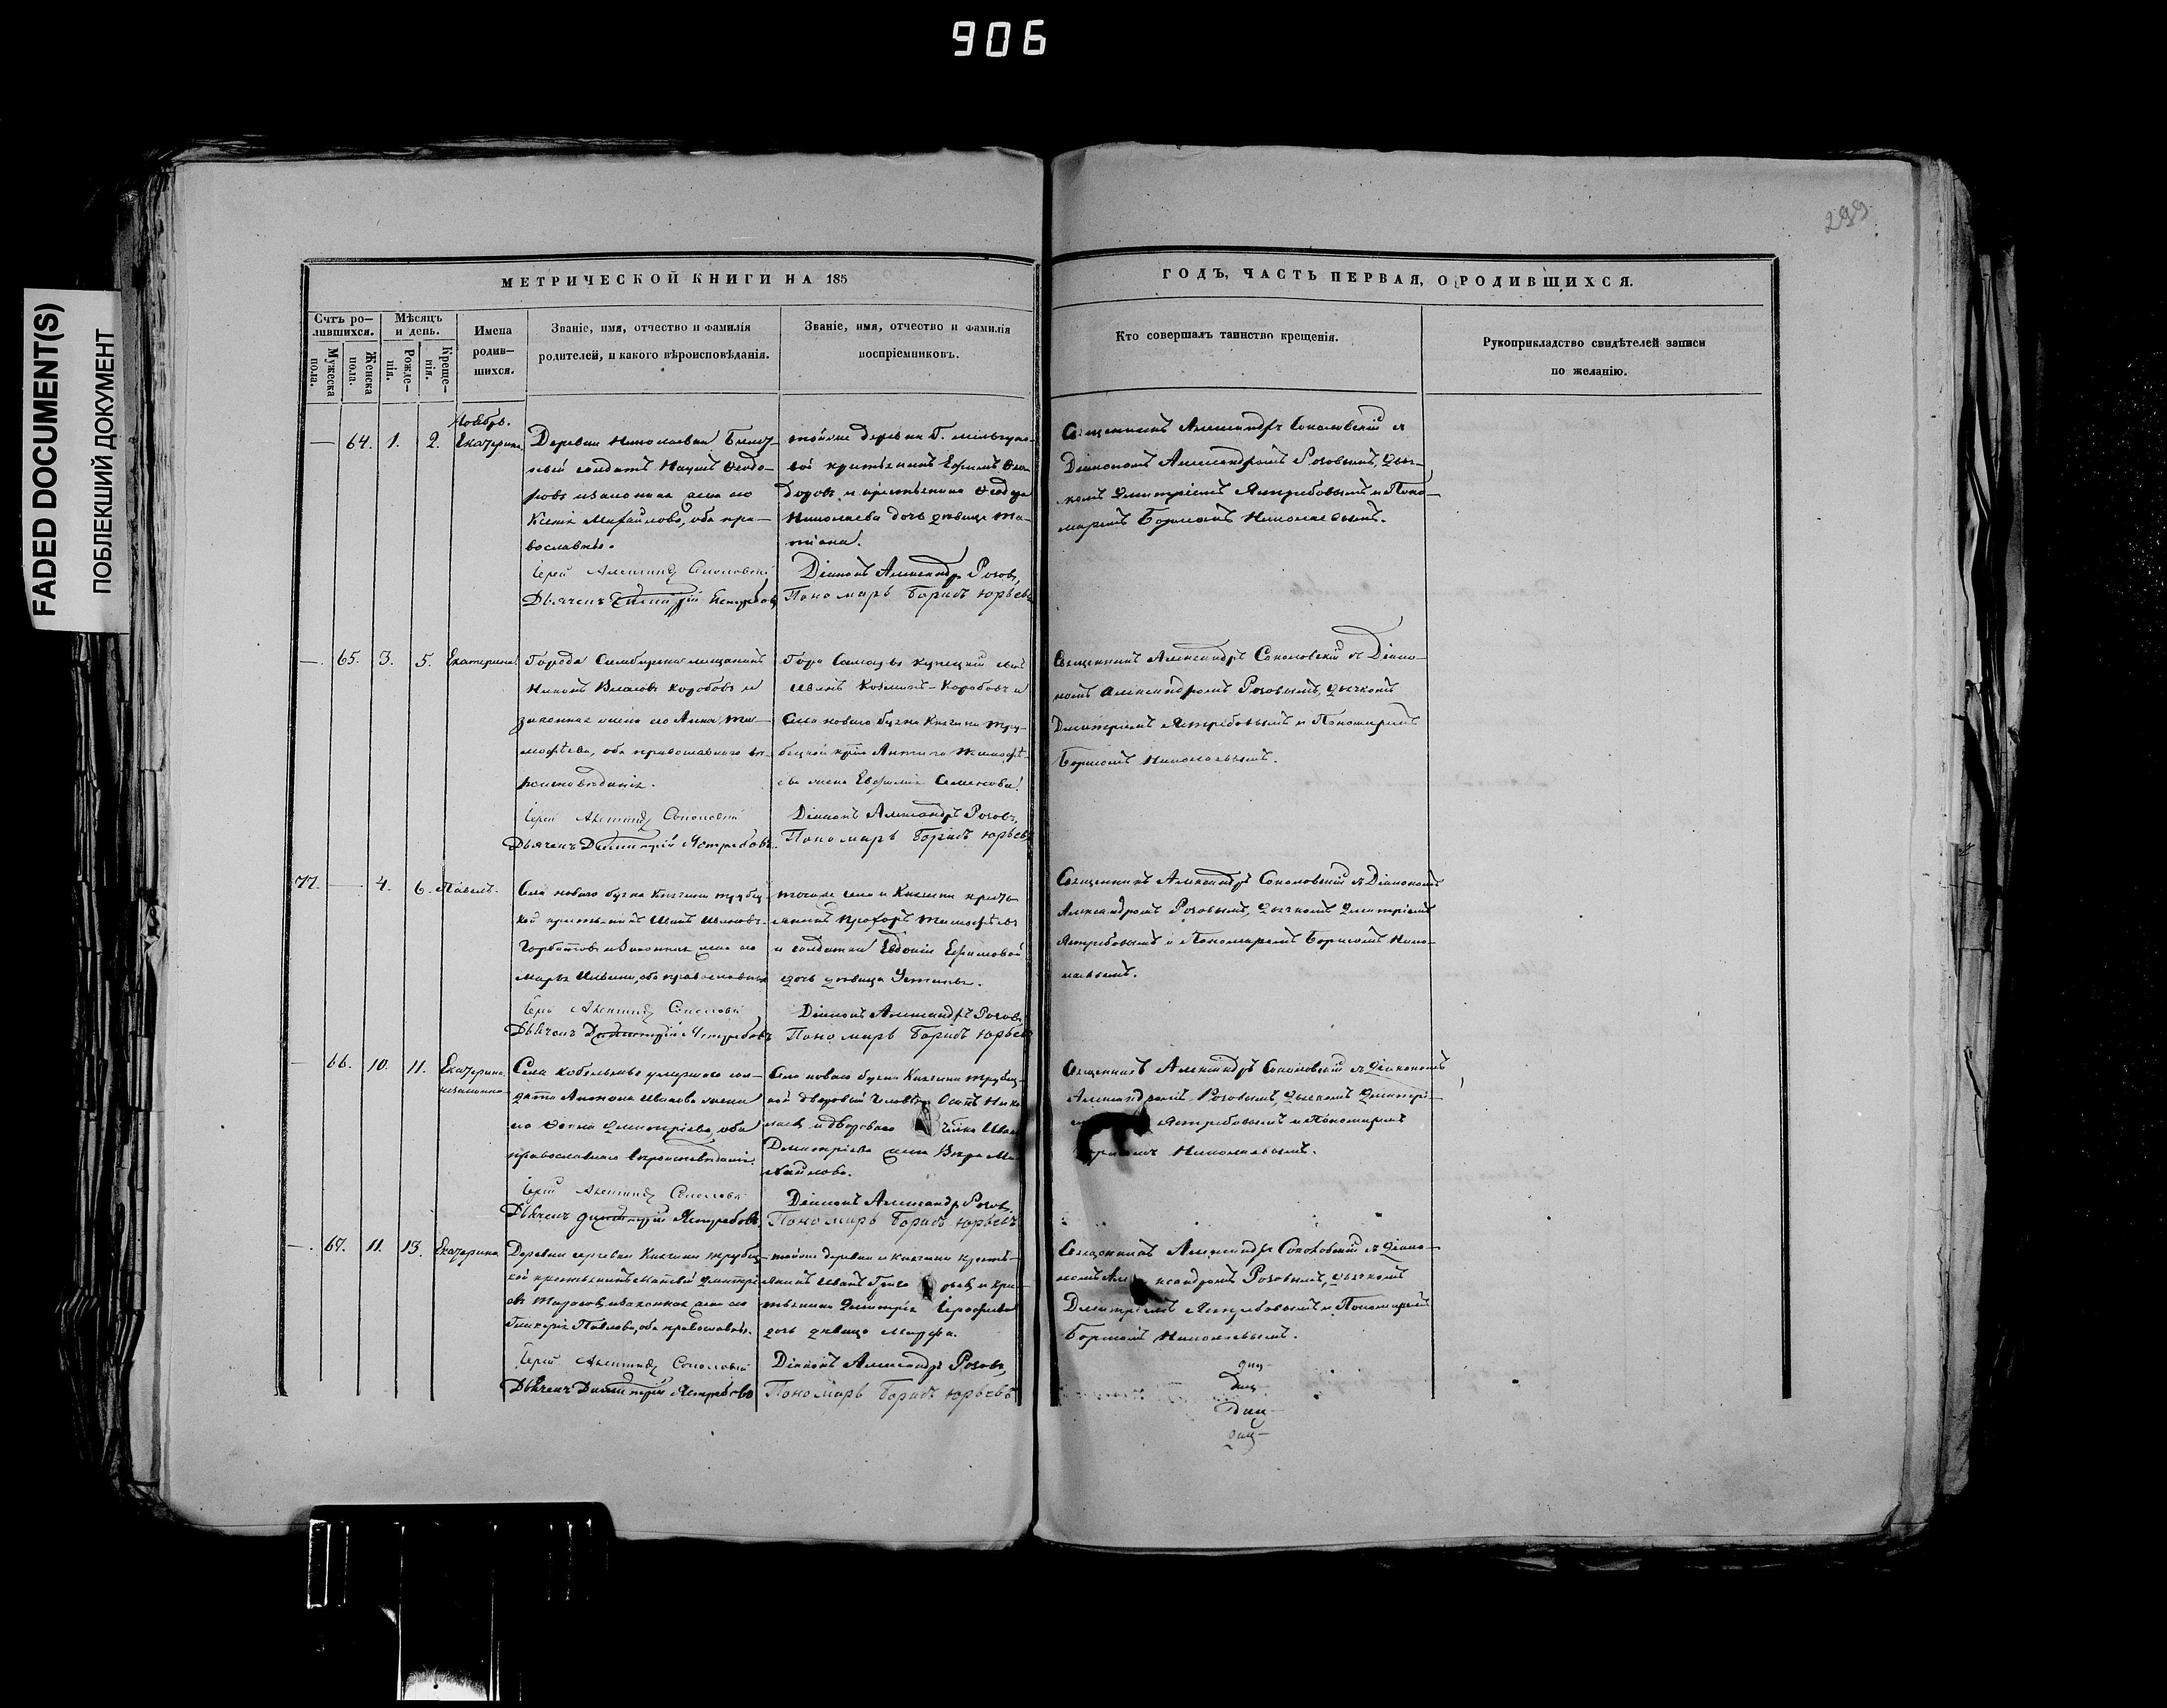 906
FADED DOCUMENT(S)
ПОБЛЕКШИЙ ДОКУМЕНТ
299
МЕТРИЧЕСКОЙ КНИГИ НА 185
ГОДЪ, ЧАСТЬ ПЕРВАЯ, О РОДИВШИХСЯ.
Счтъ ро-
дившихся.
Мужеска
пола.
Женска
пола.
Мѣсяцъ
и день.
Рожде-
нія.
Креще-
нія.
Имена
родив-
шихся.
Званіе, имя, отчество и фамилія
родителей, и какого вѣроисповѣданія.
Званіе, имя, отчество и фамилія
воспріемниковъ.
Кто совершалъ таинство крещенія.
Рукоприкладство свидѣтелей записи
по желанію.
Ноябрь.
— 64. 1. 2. Екатерина
Деревни Николаевки
солдатъ Наумъ Ѳедо-
ровъ и законная жена его
Ксенія Михайлова, оба пра-
вославны.
Іерей Александръ Соколовскій
Дьячекъ Димитрій Ястребовъ
тойже деревни Г.
крестьянинъ Ефимъ Ѳео-
доровъ и крестьянина Ѳеодора
Николаева дочь дѣвица Та-
тіана.
Діаконъ Александръ Розовъ,
Пономарь Борисъ Юрьевъ
Священникъ Александръ Соколовскій съ
Діакономъ Александромъ Розовымъ, дьяч-
комъ Димитріемъ Ястребовымъ и Поно-
маремъ Борисомъ Николаевымъ.
— 65. 3. 5. Екатерина
Города Симбирска мещанинъ
Коробовъ и
законная жена его Анна Ти-
мофѣева, оба православнаго вѣ-
роисповѣданія.
Іерей Александръ Соколовскій
Дьячекъ Димитрій Ястребовъ.
купецкій сынъ
Коробовъ и
Села новаго буяна Княгини Тру-
бецкой Тимофѣ-
ева жена Евфимія Семенова.
Діаконъ Александръ Розовъ,
Пономарь Борисъ Юрьевъ
Священникъ Александръ Соколовскій съ Діако-
номъ Александромъ Розовымъ, дьячкомъ
Димитріемъ Ястребовымъ и Пономаремъ
Борисомъ Николаевымъ.
77. — 4. 6. Павелъ.
Села новаго буяна Княгини Трубец-
кой крестьянинъ Иванъ
Горбатовъ и законная жена его
Марья Ильина, оба православны
Іерей Александръ Соколовскій
Дьячекъ Димитрій Ястребовъ
тогоже села и Княгини кресть-
янинъ Прохоръ Тимофѣевъ
и солдатки Евдокіи Ефимовой
дочь дѣвица Устинья.
Діаконъ Александръ Розовъ
Пономарь Борисъ Юрьевъ
Священникъ Александръ Соколовскій съ Діакономъ
Александромъ Розовымъ, дьячкомъ Димитріемъ
Ястребовымъ и Пономаремъ Борисомъ Нико-
лаевымъ.
— 66. 10. 11. Екатерина
незаконно
Села умершаго сол-
дата Антона Иванова жена
Димитріева, оба
православнаго вѣроисповѣданія.
Іерей Александръ Соколовскій
Дьячекъ Димитрій Ястребовъ.
Села новаго буяна Княгини Трубец-
кой дворовый человѣкъ Осипъ Нико-
лаевъ и двороваго
Димитріева жена Вера Ми-
хайлова.
Діаконъ Александръ Розовъ.
Пономарь Борисъ Юрьевъ
Священникъ Александръ Соколовскій съ Діакономъ
Александромъ Розовымъ, дьячкомъ Димитрі-
Ястребовымъ и Пономаремъ
Николаевымъ.
— 67. 11. 13. Екатерина
Деревни Сергѣевки Княгини Трубец-
кой крестьянинъ Матвей Димитрі-
евъ Тарасовъ и законная жена его
Гликерія Павлова, оба православны.
Іерей Александръ Соколовскій
Дьячекъ Димитрій Ястребовъ
тойже деревни и княгини кресть-
янинъ Иванъ и кре-
стьянина Димитрія
дочь дѣвица Марфа.
Діаконъ Александръ Розовъ,
Пономарь Борисъ Юрьевъ
Священникъ Александръ Соколовскій съ Діако-
номъ Александромъ Розовымъ, дьячкомъ
Димитріемъ Ястребовымъ и Пономаремъ
Борисомъ Николаевымъ.